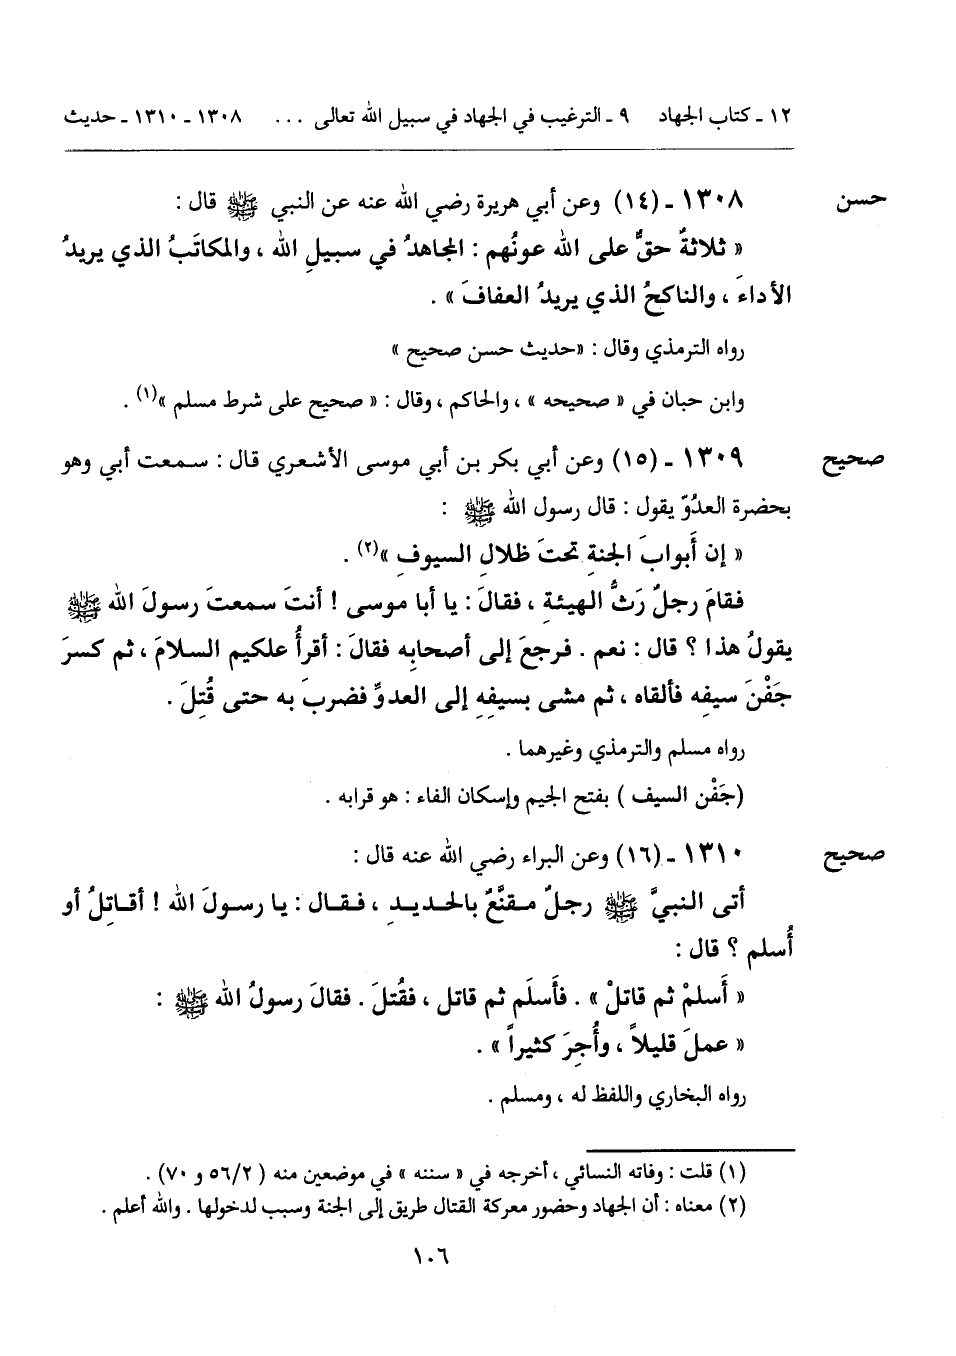 ١٢ ـ كتاب الجهاد ٩ ـ الترغيب في الجهاد في سبيل الله تعالى ... ١٣٠٨ ـ ١٣١٠ ـ حديث
حسن ١٣٠٨ ـ (١٤) وعن أبي هريرة رضي الله عنه عن النبي ﷺ قال :
« ثلاثةٌ حقٌّ على الله عونُهم : المجاهدُ في سبيلِ الله ، والمكاتَبُ الذي يريدُ
الأداءَ ، والناكحُ الذي يريدُ العفافَ » .
رواه الترمذي وقال : «حديث حسن صحيح »
وابن حبان في « صحيحه » ، والحاكم ، وقال : « صحيح على شرط مسلم »(١) .
صحيح ١٣٠٩ ـ (١٥) وعن أبي بكر بن أبي موسى الأشعري قال : سمعت أبي وهو
بحضرة العدُوّ يقول : قال رسول الله ﷺ :
« إن أَبوابَ الجنةِ تحتَ ظلالِ السيوفِ »(٢) .
فقامَ رجلٌ رَثُّ الهيئةِ ، فقالَ : يا أبا موسى ! أنتَ سمعتَ رسولَ الله ﷺ
يقولُ هذا ؟ قال : نعم . فرجعَ إلى أصحابِه فقالَ : أقرأُ علكيم السلامَ ، ثم كسرَ
جَفْنَ سيفِه فألقاه ، ثم مشى بسيفِهِ إلى العدوِّ فضربَ به حتى قُتِلَ .
رواه مسلم والترمذي وغيرهما .
(جَفْن السيف ) بفتح الجيم وإسكان الفاء : هو قرابه .
صحيح ١٣١٠ ـ (١٦) وعن البراء رضي الله عنه قال :
أتى النبيَّ ﷺ رجلٌ مقنَّعٌ بالحديدِ ، فقال : يا رسولَ الله ! أقاتِلُ أو
أُسلم ؟ قال :
« أَسلمْ ثم قاتلْ » . فأَسلَم ثم قاتل ، فقُتلَ . فقالَ رسولُ الله ﷺ :
« عملَ قليلاً ، وأُجِرَ كثيراً » .
رواه البخاري واللفظ له ، ومسلم .
(١) قلت : وفاته النسائي ، أخرجه في « سننه » في موضعين منه ( ٥٦/٢ و ٧٠) .
(٢) معناه : أن الجهاد وحضور معركة القتال طريق إلى الجنة وسبب لدخولها . والله أعلم .
١٠٦